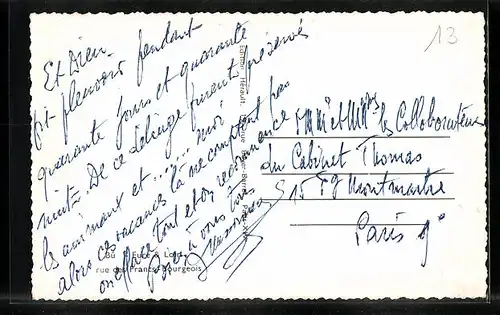 Et Dieu
fit pleuvoir pendant
quarante jours et quarante
nuits. De ce déluge furent préservés
les animaux et ...,... moi
alors ces vacances là ne comptent pas
on efface tout et on recommence
à vous tous
13
MM et Mmes les Collaborateurs
du Cabinet Thomas
15 Fg Montmartre
Paris 9e
Edition Hérault
rue des Francs-Bourgeois